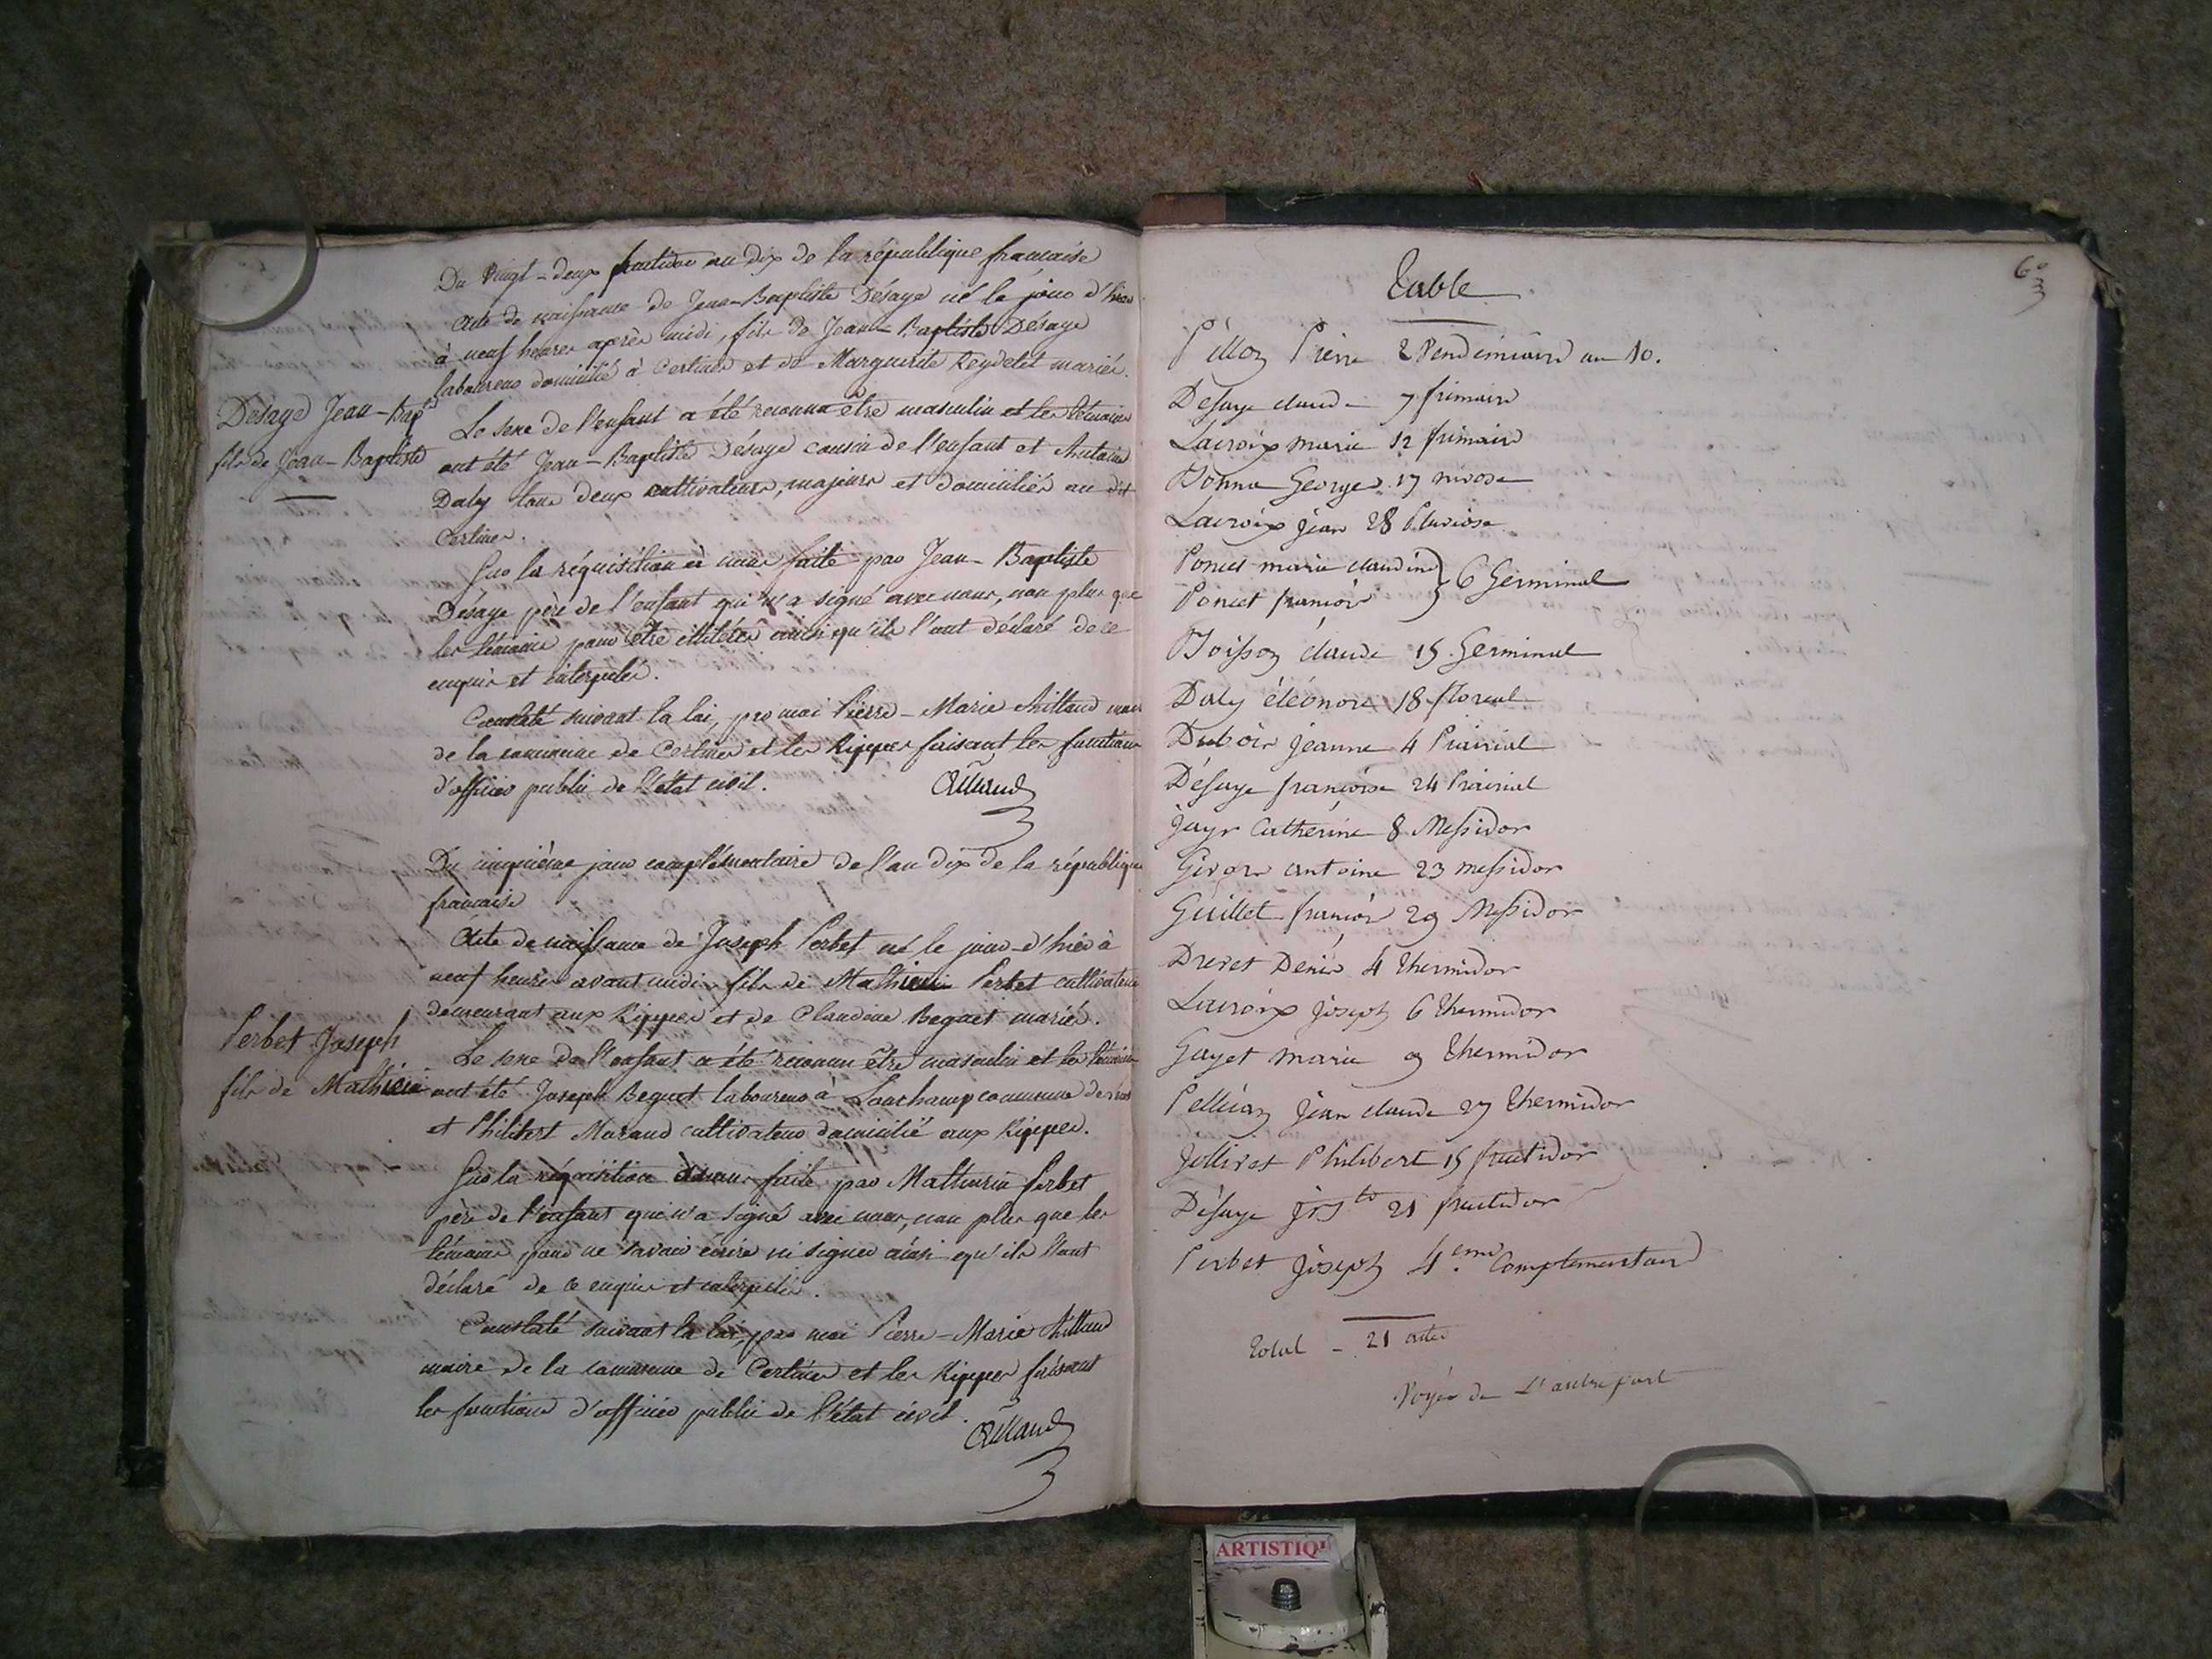 Du Vingt-deux fructidor an dix de la république française
Acte de naissance de Jean-Baptiste Désaye né le jour d'hier
à neuf heures après midi, fils de Jean-Baptiste Désaye
laboureur domicilié à Certines et de Marguerite Reydelet mariés.
Désaye Jean-Bapte
fils de Jean-Baptiste
Le sexe de l'enfant a été reconnu être masculin et les témoins
ont été Jean-Baptiste Désaye cousin de l'enfant et Antoine
Daly tous deux cultivateurs, majeurs et domiciliés au dit
Certines.
Sur la réquisition à nous faite par Jean-Baptiste
Désaye père de l'enfant qui n'a signé avec nous, non plus que
les témoins pour être illitérés ainsi qu'ils l'ont déclaré de ce
enquis et interpellés.
Constaté suivant la loi, par moi Pierre-Marie maire
de la commune de Certines et les Rippes faisant les fonctions
d'officier public de l'état civil.
Du cinquième jour complémentaire de l'an dix de la république
française
Acte de naissance de Joseph Perbet né le jour d'hier à
neuf heures avant midi fils de Mathieu Perbet cultivateur
demeurant aux Rippes et de Claudine Beguet mariés.
Perbet Joseph
fils de Mathieu
Le sexe de l'enfant a été reconnu être masculin et les témoins
ont été Joseph Beguet laboureur à Lonchamp commune de
et Philibert Maraud cultivateur domicilié aux Rippes.
Sur la réquisition à nous faite par Mathurin Perbet
père de l'enfant qui n'a signé avec nous, non plus que les
témoins pour ne savoir écrire ni signer ainsi qu'ils l'ont
déclaré de ce enquis et interpellés.
Constaté suivant la loi, par moi Pierre-Marie
maire de la commune de Certines et les Rippes faisant
les fonctions d'officier public de l'état civil.
Table
Pillon Pierre 2 Vendémiaire an 10.
Desaye claude 7 frimaire
Lacroix marie 12 frimaire
Bonna George 17 nivose
Lacroix jean 28 Pluviose
Poncet marie claudine } 6 Germinal
Poncet françois
Boisson claude 15 Germinal
Daly éléonore 18 floreal
Dubois jeanne 4 Prairial
Désaye françoise 24 Prairial
Jayr Catherine 8 Messidor
Givors antoine 23 messidor
Guillet françois 29 Messidor
Drevet Dénis 4 thermidor
Lacroix joseph 6 thermidor
Gayet marie 9 thermidor
Pellicon jean claude 27 thermidor
Jollivet Philibert 15 fructidor
Désaye jn Bte 21 fructidor
Perbet joseph 4.eme Complementaire
Total - 21 actes
Voyés de L'autre part
ARTISTIQU